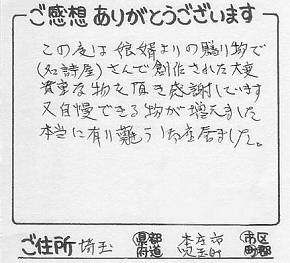 ご感想ありがとうございます
この度は娘婿よりの贈り物で
(名詩屋)さんで創作された大変
貴重な物を頂き感謝しています
又自慢できる物が増えました
本当に有り難うご座居ました。
ご住所 埼玉 都道府県 本庄市児玉町 市区町郡